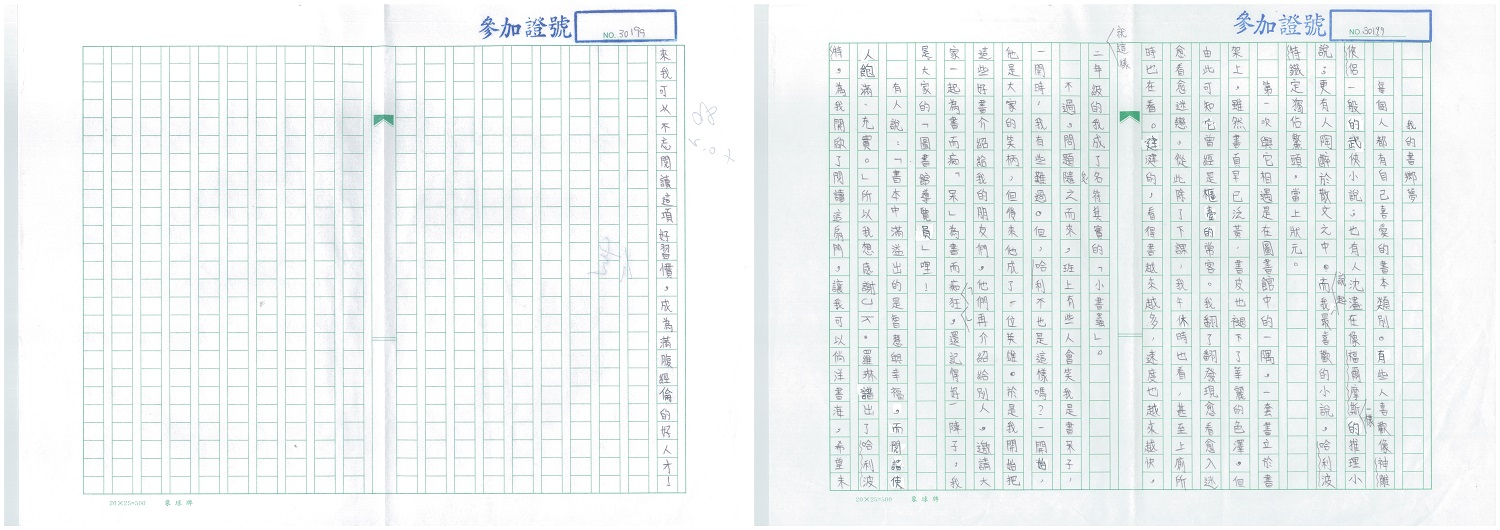 參加證號
NO. 30199
我的書鄉夢
每個人都有自己喜愛的書本類別。有些人喜歡像神鵰
俠侶一般的武俠小說;也有人沈溺在像福爾摩斯一樣的推理小
說;更有人陶醉於散文之中。而說起我最喜歡的小說,哈利波
特鐵定獨佔鰲頭,當上狀元。
第一次與它相遇是在圖書館中的一隅,一套書立於書
架上,雖然書頁早已泛黃,書皮也褪下了華麗的色澤。但
由此可知它曾經是櫃臺的常客。我翻了翻發現愈看愈入迷
愈看愈迷戀。從此除了下課,我午休時也看,甚至上廁所
時也在看。漸漸的,看得書越來越多,速度也越來越快,
就這樣
二年級的我成了名符其實的「小書蟲」。
不過,問題隨之而來,班上有些人會笑我是書呆子,
一開時,我有些難過。但,哈利不也是這樣嗎?一開始,
他是大家的笑柄,但後來他成了一位英雄。於是我開始把
這些好書介紹給我的朋友們,他們再介紹給別人。邀請大
家一起為書而痴「呆」為書而痴狂,還記得好一陣子,我
是大家的「圖書館導覽員」哩!
有人說:「書本中滿溢出的是智慧與幸福,而閱讀使
人飽滿、充實。」所以我想感謝J.K.羅琳譜出了哈利波
特,為我開啟了閱讀這扇門,讓我可以徜徉書海,希望未
20×25=500 象球牌
參加證號
NO. 30199
來我可以不忘閱讀這項好習慣,成為滿腹經倫的好人才!
20×25=500 象球牌